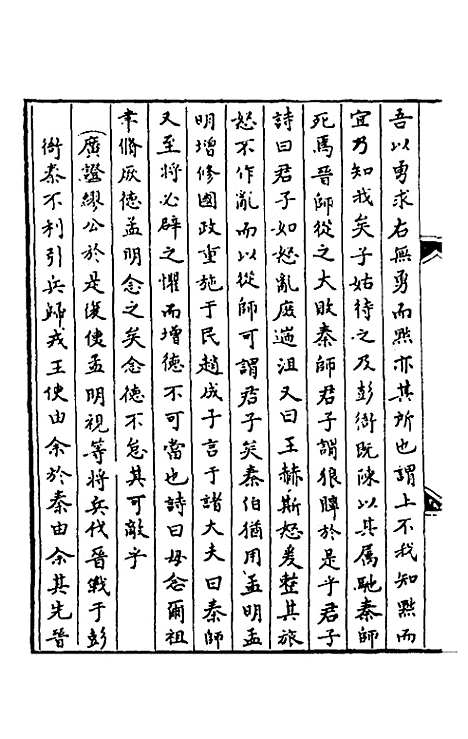 吾以勇求右無勇而黜亦其所也謂上不我知黜而
宜乃知我矣子姑待之及彭衙既陳以其屬馳秦師
死焉晉師從之大敗秦師君子謂狼瞫於是乎君子
詩曰君子如怒亂庶遄沮又曰王赫斯怒爰整其旅
怒不作亂而以從師可謂君子矣秦伯猶用孟明孟
明增修國政重施于民趙成子言于諸大夫曰秦師
又至將必辟之懼而增德不可當也詩曰毋念爾祖
聿脩厥德孟明念之矣念德不怠其可敵乎
(廣證繆公於是復使孟明視等將兵伐晉戰于彭
衙秦不利引兵歸戎王使由余於秦由余其先晉